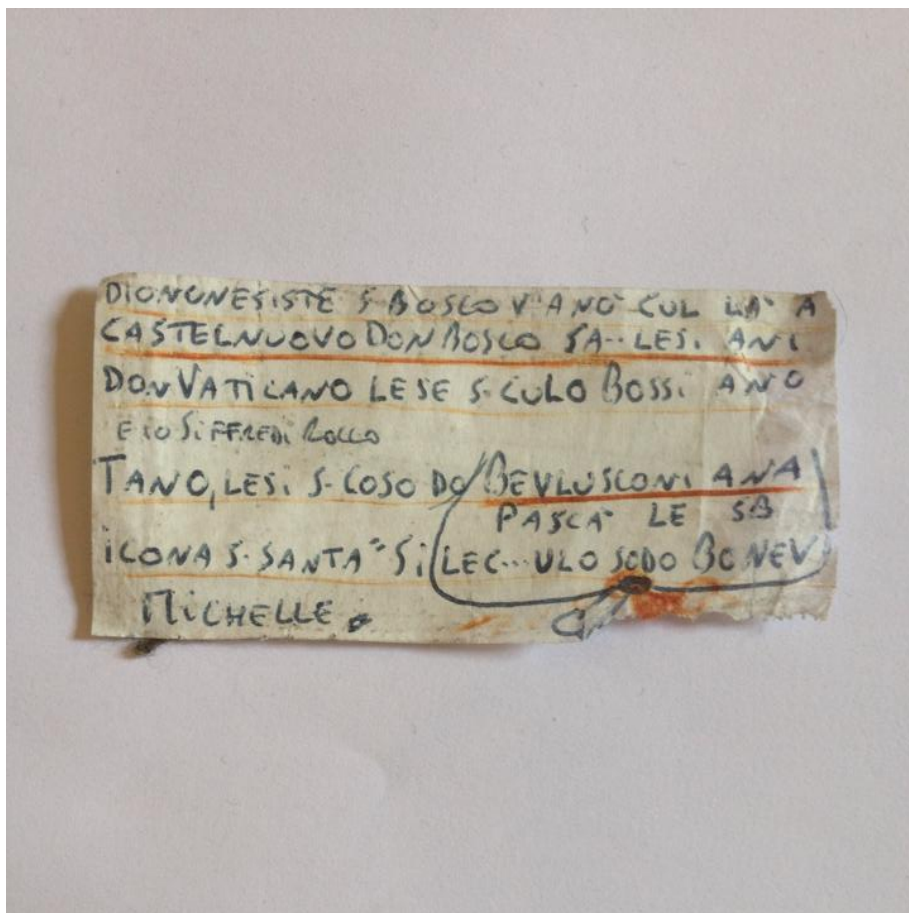 DIONONESISTE S-BOSCO V'ANO CUL LA' A
CASTELNUOVO DON BOSCO SA··LESi ANI
DON VATICANO LESE S-CULO BOSSi ANO
E IO SiFFREDi ROCCO
TANO, LESi S-COSO DO BEVLUSCONI ANA
PASCA' LE SB
iCONA S-SANTA" Si LEC...ULO SODO BONEV
MiCHELLE.